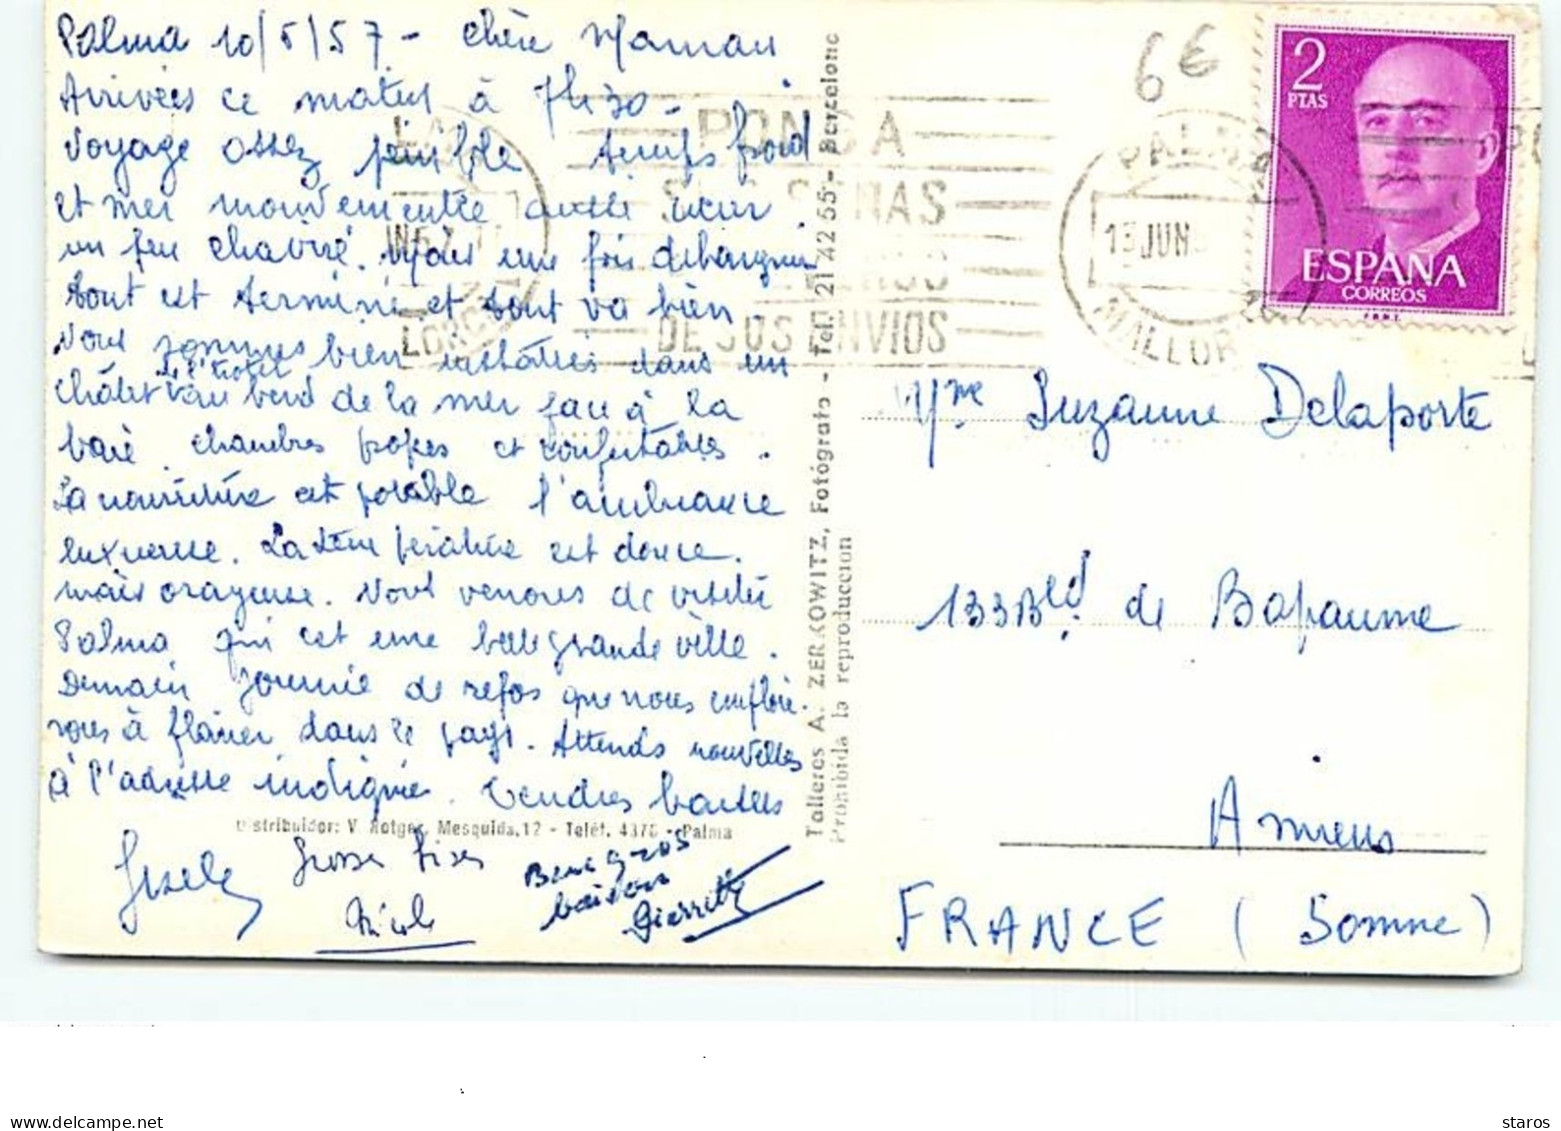 Palma 10/6/57 - Chère Maman
Arrivées ce matin à 7h30 -
Voyage assez pénible temps froid
et mer mouvementée aussi cœur
un peu chaviré. Mais une fois débarquées
tout est terminé et tout va bien.
Nous sommes bien installées dans un
de l'hotel
châlet au bord de la mer face à la
baie chambres propres et confortables.
La nourriture est potable l'ambiance
luxueuse. La température est douce.
mais orageuse. Nous venons de visiter
Palma qui est une belle grande ville.
Demain journée de repos que nous emploie-
rons à flâner dans le pays. Attends nouvelles
à l'adresse indiquée. Tendres baisers
Gisele
Grosses bises
Nicole
Bons gros
baisers
Pierrette
Distribuidor: V. Rotger, Mesquida, 12 - Teléf. 4370 - Palma
Talleres A. ZERKOWITZ, Fotógrafo - Tel. 21 42 55 - Barcelona
Prohibida la reproduccion
6€
2
PTAS
ESPAÑA
CORREOS
PALMA
13 JUN
MALLOR
PONGA
SUS SEÑAS
DE SUS ENVIOS
LORC
Mme Suzanne Delaporte
133 Bld de Bapaume
Amiens
FRANCE (Somme)
www.delcampe.net
staros